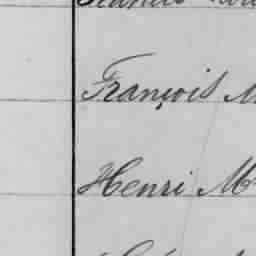 François M
Henri M